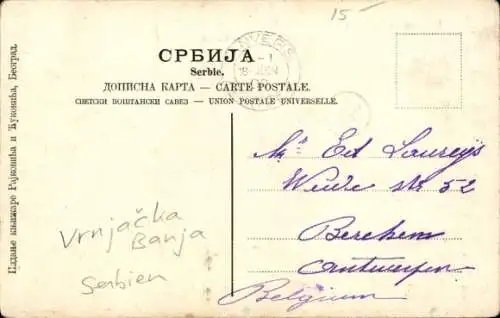 15-
СРБИЈА
Serbie.
ДОПИСНА КАРТА — CARTE POSTALE.
СВЕТСКИ ПОШТАНСКИ САВЕЗ — UNION POSTALE UNIVERSELLE.
Издање књижаре Рајковића и Ћуковића, Београд.
Mr Ed Laureys
str 52
Berchem
Antwerpen
Belgium
Vrnjačka
Banja
Serbien